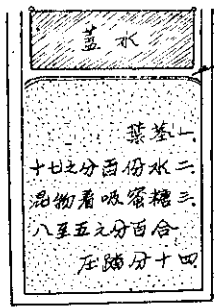 水盖
一.莖葉
二.水份百分之七十
三.糖蜜吸着物混
合百分之五至八
四.十分踏压